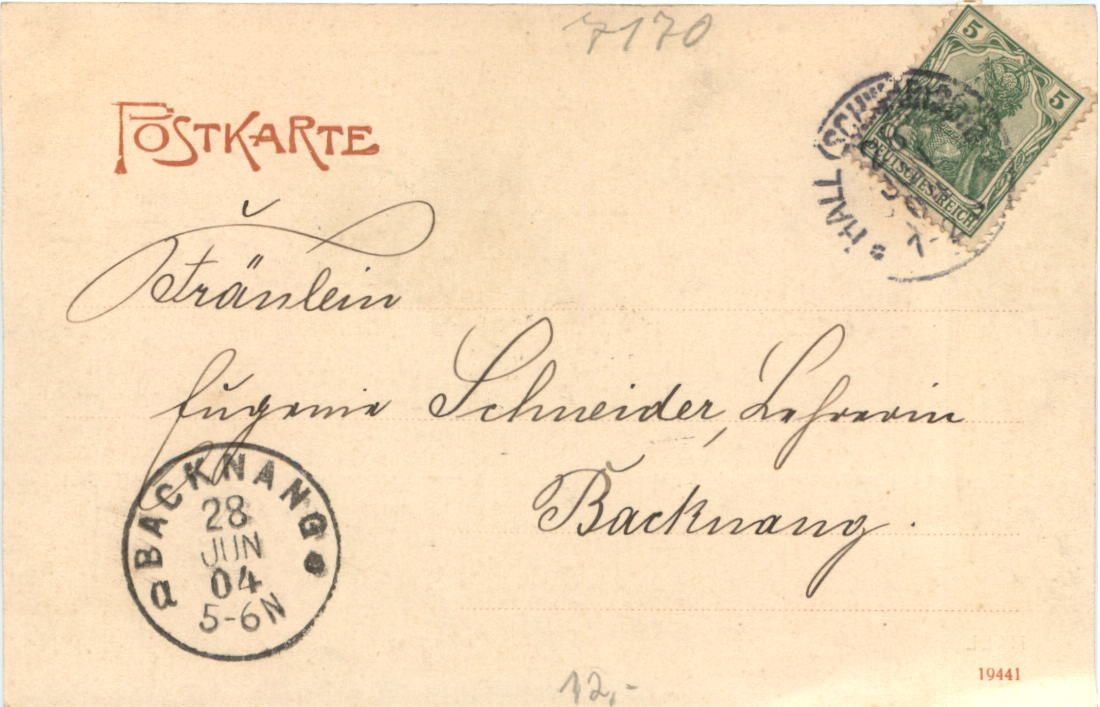 7170
POSTKARTE
5
5
DEUTSCHES REICH
* HALL (SCHWÄB.)
Fräulein
Eugenie Schneider, Lehrerin
Backnang.
BACKNANG
28
JUN
04
5-6N
a
19441
12,-